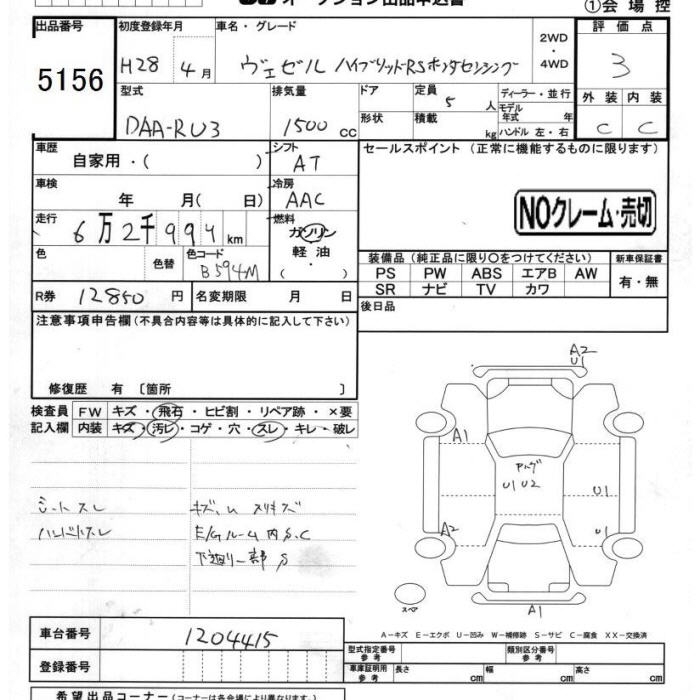 オークション出品申込書
①会場控
出品番号 初度登録年月 車名・グレード 評価点
5156 H28 4月 ヴェゼル ハイブリッドRSホンダセンシング 2WD・4WD 3
型式 排気量 ドア 定員 ディーラー・並行 外装 内装
DAA-RU3 1500cc 5人 モデル年式 年 C C
形状 積載 kg ハンドル 左・右
車歴 シフト セールスポイント(正常に機能するものに限ります)
自家用・( ) AT
車検 冷房
年 月( 日) AAC
NOクレーム・売切
走行 燃料
6万2千994km ガソリン
軽油
・
色 色替 色コード
B594M
装備品(純正品に限り○をつけてください) 新車保証書
PS PW ABS エアB AW 有・無
SR ナビ TV カワ
R券 12850円 名変期限 月 日 後日品
注意事項申告欄(不具合内容等は具体的に記入して下さい)
修復歴 有 [箇所 ]
検査員 FW キズ・飛石・ヒビ割・リペア跡・×要
記入欄 内装 キズ・汚レ・コゲ・穴・スレ・キレ・破レ
シートスレ キズ、U スリキズ
ハンドルスレ E/Gルーム内S.C
下廻り一部S
A2
U1
A1
U1 U2
U1
A2
U1
スペア
A1
A-キズ E-エクボ U-凹み W-補修跡 S-サビ C-腐食 XX-交換済
車台番号 1204415
登録番号
型式指定番号 参考 類別区分番号 参考
車庫証明用 参考 長さ cm 幅 cm 高さ cm
希望出品コーナー(コーナーは各会場により異なります)